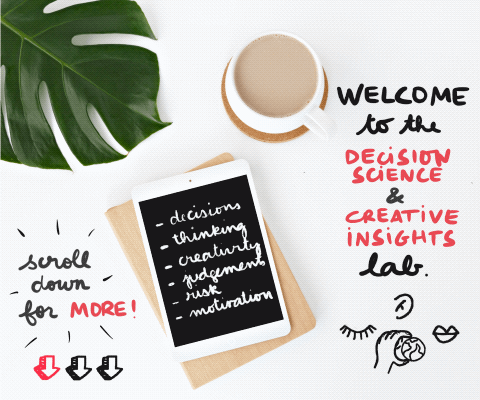 WELCOME
to the
DECISION
SCIENCE
&
CREATIVE
INSIGHTS
lab.
- decisions
- thinking
- creativity
- judgement
- risk
- motivation
scroll
down
for MORE!